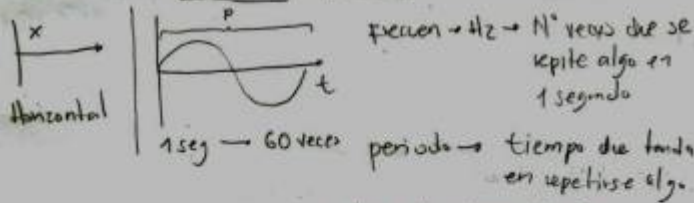 x
Horizontal
P
t
1 seg → 60 veces
frecuen → Hz → N° veces que se
repite algo en
1 segundo
periodo → tiempo que tarda
en repetirse algo